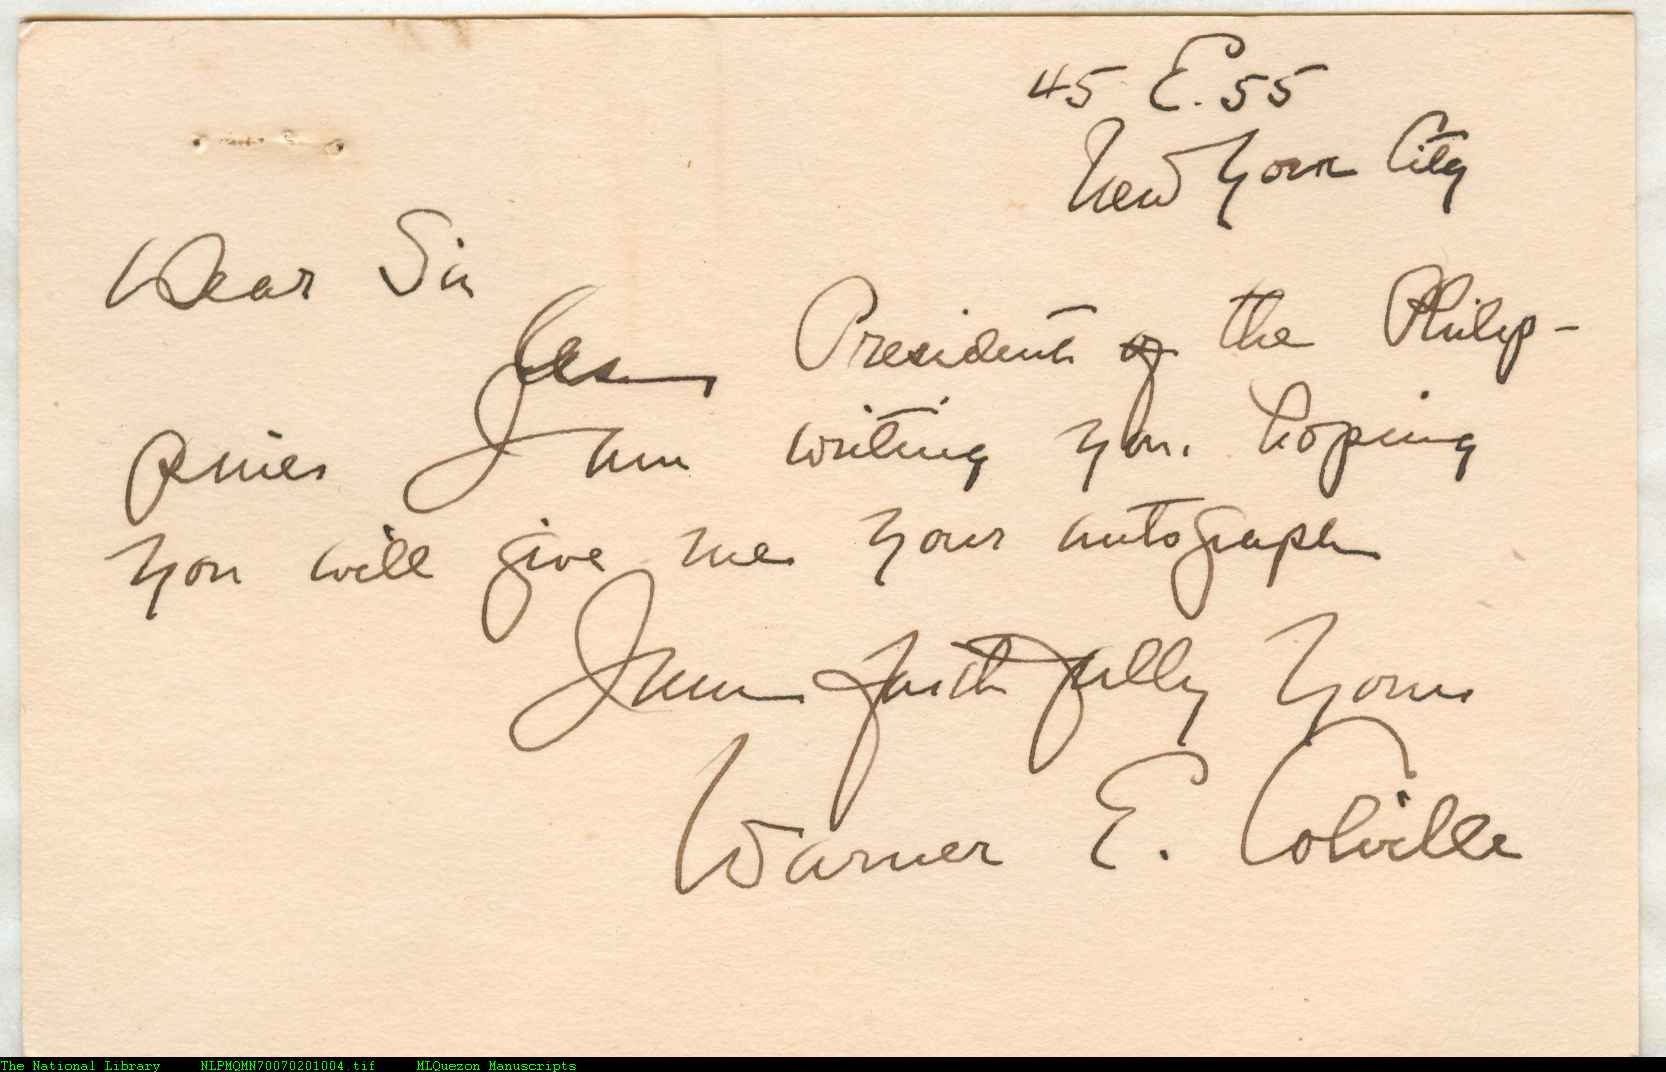 45 E. 55
New York City
Dear Sir
As President of the Philip-
pines I am writing you. hoping
you will give me your autograph
I am faithfully yours
Warner E. Colville
The National Library NLPMQMN70070201004.tif MLQuezon Manuscripts